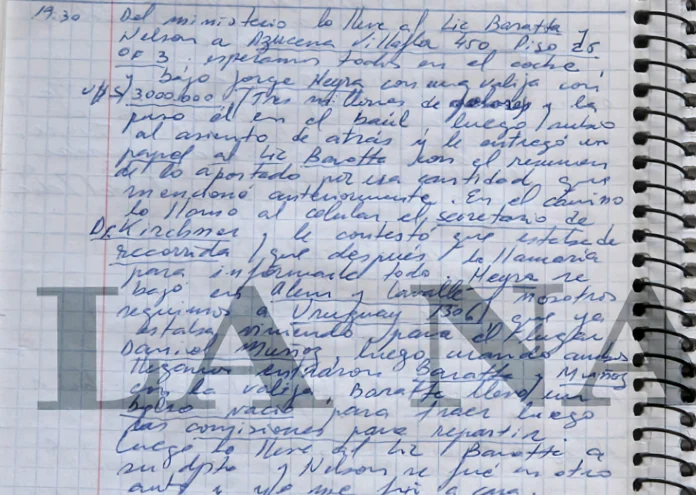 19.30 Del ministerio lo lleve al Lic Baratta y
Nelson a Azucena Villaflor 450, Piso 25
OF 3, esperamos todos en el coche
y bajo Jorge Neyra con una valija con
U$S 3000.000 (Tres millones de dolares y la
puso él en el baúl luego subio
al asiento de atrás y le entregó un
papel al Lic Baratta con el resumen
de lo aportado por esa cantidad que
mencionó anteriormente. En el camino
lo llamo al celular el secretario de
Dr Kirchner y le contestó que estaba de
recorrida, que después lo llamaria
para informarle todo. Neyra se
bajó en Alem y Lavalle, nosotros
seguimos a Uruguay 1306, que ya
estaba viniendo para el lugar
Daniel Muñoz, luego cuando ambos
llegamos entraron Baratta y Muñoz
con la valija. Baratta llevó un
bolso vacio para traer luego
las comisiones para repartir.
Luego lo lleve al Lic Baratta a
su dpto y Nelson se fué en otro
auto y yo me fui a casa.
LA NA